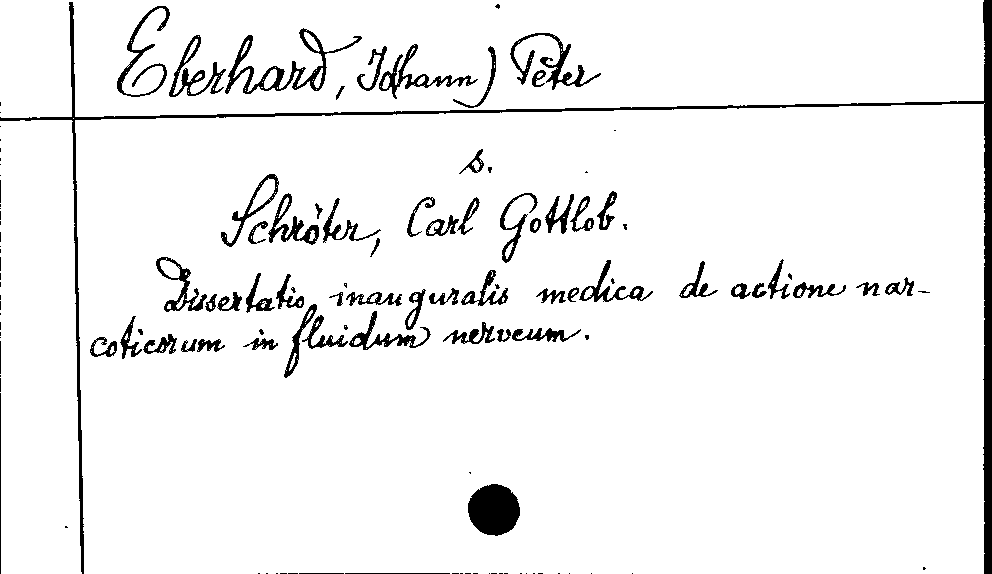 Eberhard, Johann) Peter
s.
Schröter, Carl Gottlob.
Dissertatio inauguralis medica de actione nar-
coticorum in fluidum nerveum.